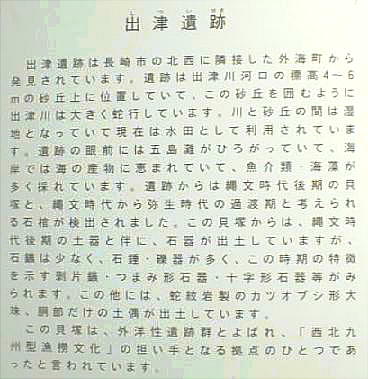 出津遺跡
出津遺跡は長崎市の北西に隣接した外海町から
発見されています。遺跡は出津川河口の標高4〜6
mの砂丘上に位置していて、この砂丘を囲むように
出津川は大きく蛇行しています。川と砂丘の間は湿
地となっていて現在は水田として利用されていま
す。遺跡の眼前には五島灘がひろがっていて、海
岸では海の産物に恵まれていて、魚介類・海藻が
多く採れています。遺跡からは縄文時代後期の貝
塚と、縄文時代から弥生時代の過渡期と考えられ
る石棺が検出されました。この貝塚からは、縄文時
代後期の土器と伴に、石器が出土していますが、
石鏃は少なく、石錘・礫器が多く、この時期の特徴
を示す剥片鏃・つまみ形石器・十字形石器等がみ
られます。この他には、蛇紋岩製のカツオブシ形大
珠、胴部だけの土偶が出土しています。
この貝塚は、外洋性遺跡群とよばれ、「西北九
州型漁撈文化」の担い手となる拠点のひとつであっ
たと言われています。